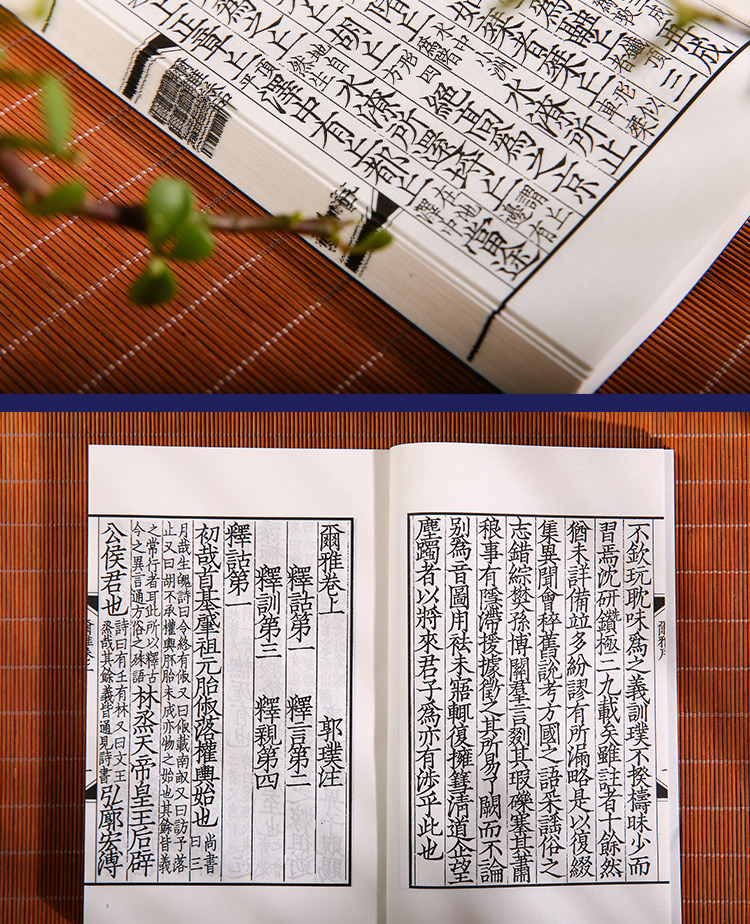 如椉者椉丘
形似
車椉
水潦所止
胡丘
形四
方
絕高為之京
水潦所還埒丘
謂丘
邊有
正章丘
頂
平
澤中有丘都丘
在池
澤中
當途
不欽玩耽味為之義訓璞不揆檮昧少而
習焉沈研鑽極二九載矣雖註者十餘然
猶未詳備竝多紛謬有所漏略是以復綴
集異聞會稡舊說考方國之語采謠俗之
志錯綜樊孫博關羣言剟其瑕礫搴其蕭
稂事有隱滯援據徵之其所易了闕而不論
別為音圖用袪未寤輒復擁篲清道企望
塵躅者以將來君子為亦有涉乎此也
爾雅卷上 郭璞注
釋詁第一 釋言第二
釋訓第三 釋親第四
釋詁第一
初哉首基肇祖元胎俶落權輿始也 尚書曰三
月哉生魄詩曰令終有俶又曰俶載南畝又曰訪予落
止又曰胡不承權輿胚胎未成亦物之始也其餘皆義
之常行者耳此所以釋古
今之異言通方俗之殊語
林烝天帝皇王后辟
公侯君也
詩曰有壬有林又曰文王
烝哉其餘義皆通見詩書
弘廓宏溥